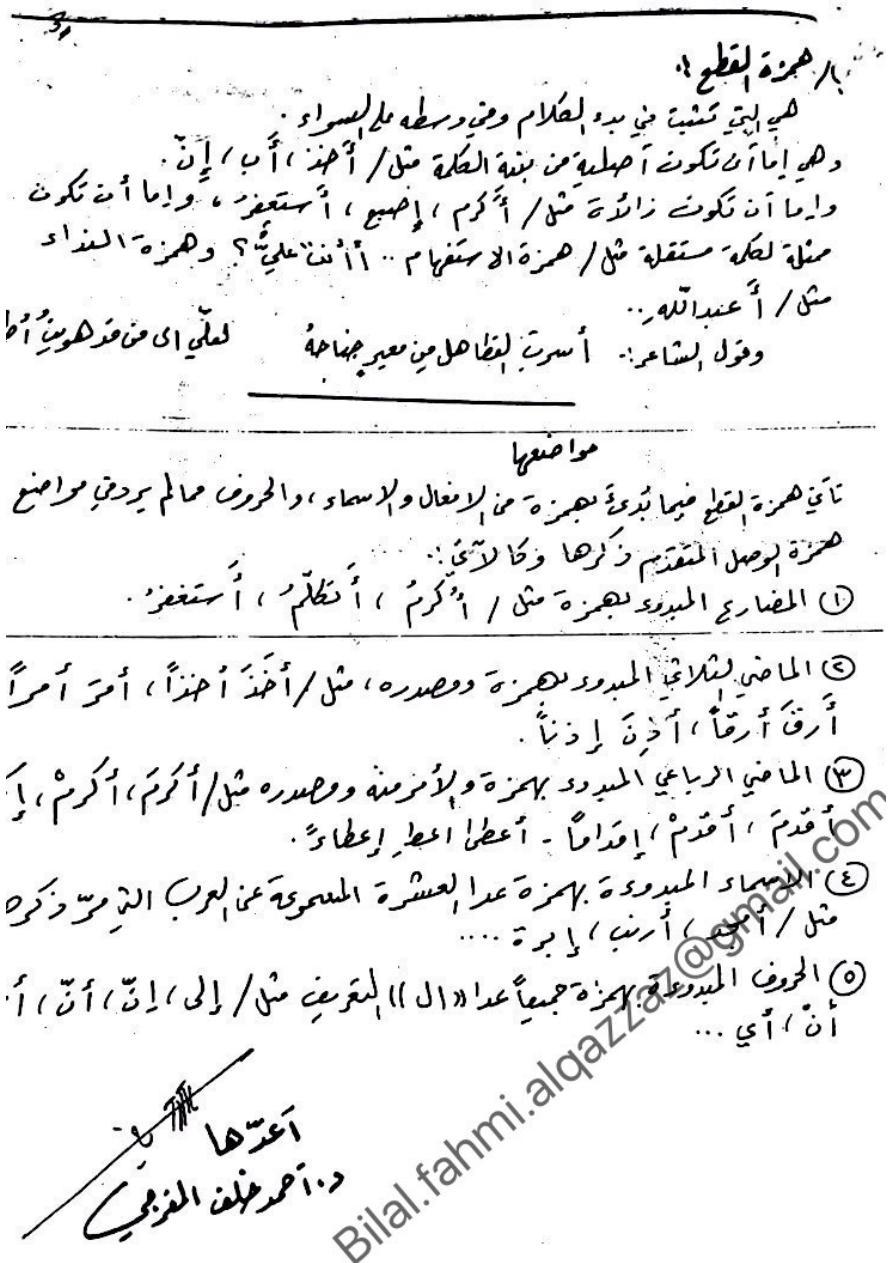 ب/ همزة القطع :.
هي التي تثبت في بدء الكلام وفي وسطه على السواء .
وهي إما أن تكون أصلية من بنية الكلمة مثل / أَخذ ، أَب ، إِنّ .
وإما أن تكون زائدة مثل / أَكرم ، إصبع ، أَستغفرُ ، وإما أن تكون
ممثلة لكلمة مستقلة مثل / همزة الاستفهام .. أأنت عليٌّ ؟ وهمزة النداء
مثل / أَ عبدالله ..
وقول الشاعر :. أسربَ القطا هل من معير جناحهُ لعلّي الى من قد هويتُ
مواضعها
تأتي همزة القطع فيما بُدئَ بهمزة من الافعال والاسماء ، والحروف مما لم يرد في مواضع
همزة الوصل المتقدم ذكرها وكالآتي :.
(١) المضارع المبدوء بهمزة مثل / أُكرمُ ، أَتكلّمُ ، أَستغفرُ .
(٢) الماضي الثلاثي المبدوء بهمزة ومصدره ، مثل / أَخَذَ أَخذاً ، أمرَ أمراً
أَرِقَ أَرقاً ، أَذِنَ إذناً .
(٣) الماضي الرباعي المبدوء بهمزة والأمر منه ومصدره مثل / أكرمَ ، أكرمْ ،
أقدمَ ، أقدمْ ، إقداماً - أعطى اعطِ إعطاءً .
(٤) الاسماء المبدوءة بهمزة عدا العشرة المسموعة عن العرب التي مرّ ذكرها
مثل / أمجد ، أرنب ، إبرة ....
(٥) الحروف المبدوءة بهمزة جميعاً عدا ((ال)) التعريف مثل / إلى ، إنّ ، أنّ ،
أنْ ، أي ...
أعدّها
د. أحمد خلف المفرجي
Bilal.fahmi.alqazzaz@gmail.com